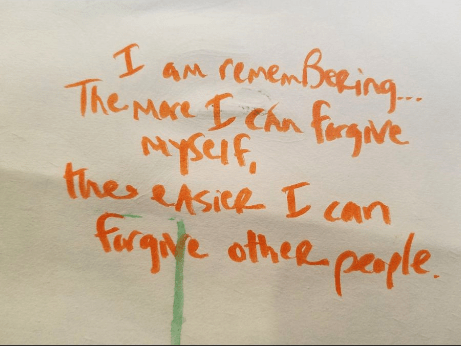 I am remembering...
The more I can forgive
myself,
the easier I can
forgive other people.